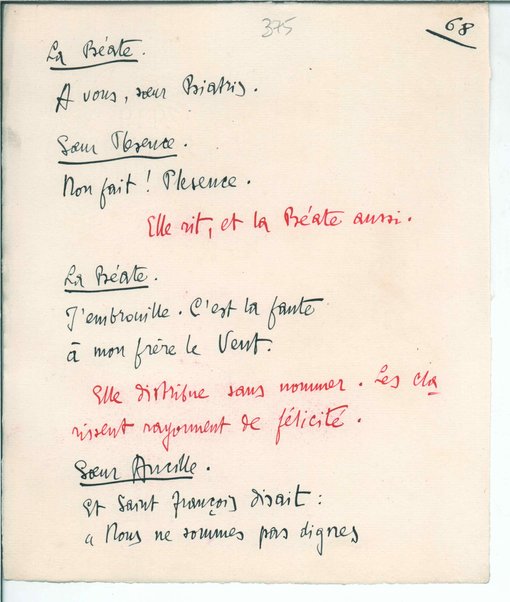 375
68
La Béate.
A vous, sœur Biatris.
Sœur Plesence.
Non fait ! Plesence.
Elle rit, et la Béate aussi.
La Béate.
J'embrouille. C'est la faute
à mon frère le Vent.
Elle distribue sans nommer. Les cla
rissent rayonnent de félicité.
Sœur Ancille.
Et Saint François disait :
« Nous ne sommes pas dignes